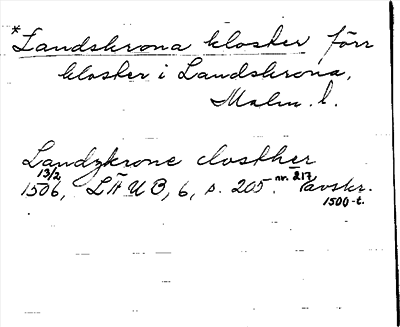 *Landskrona kloster förr
kloster i Landskrona,
Malm. l.
Landzkrone closther
13/2 1506, LÄUB, 6, s. 205. nr. 217 avskr.
1500-t.